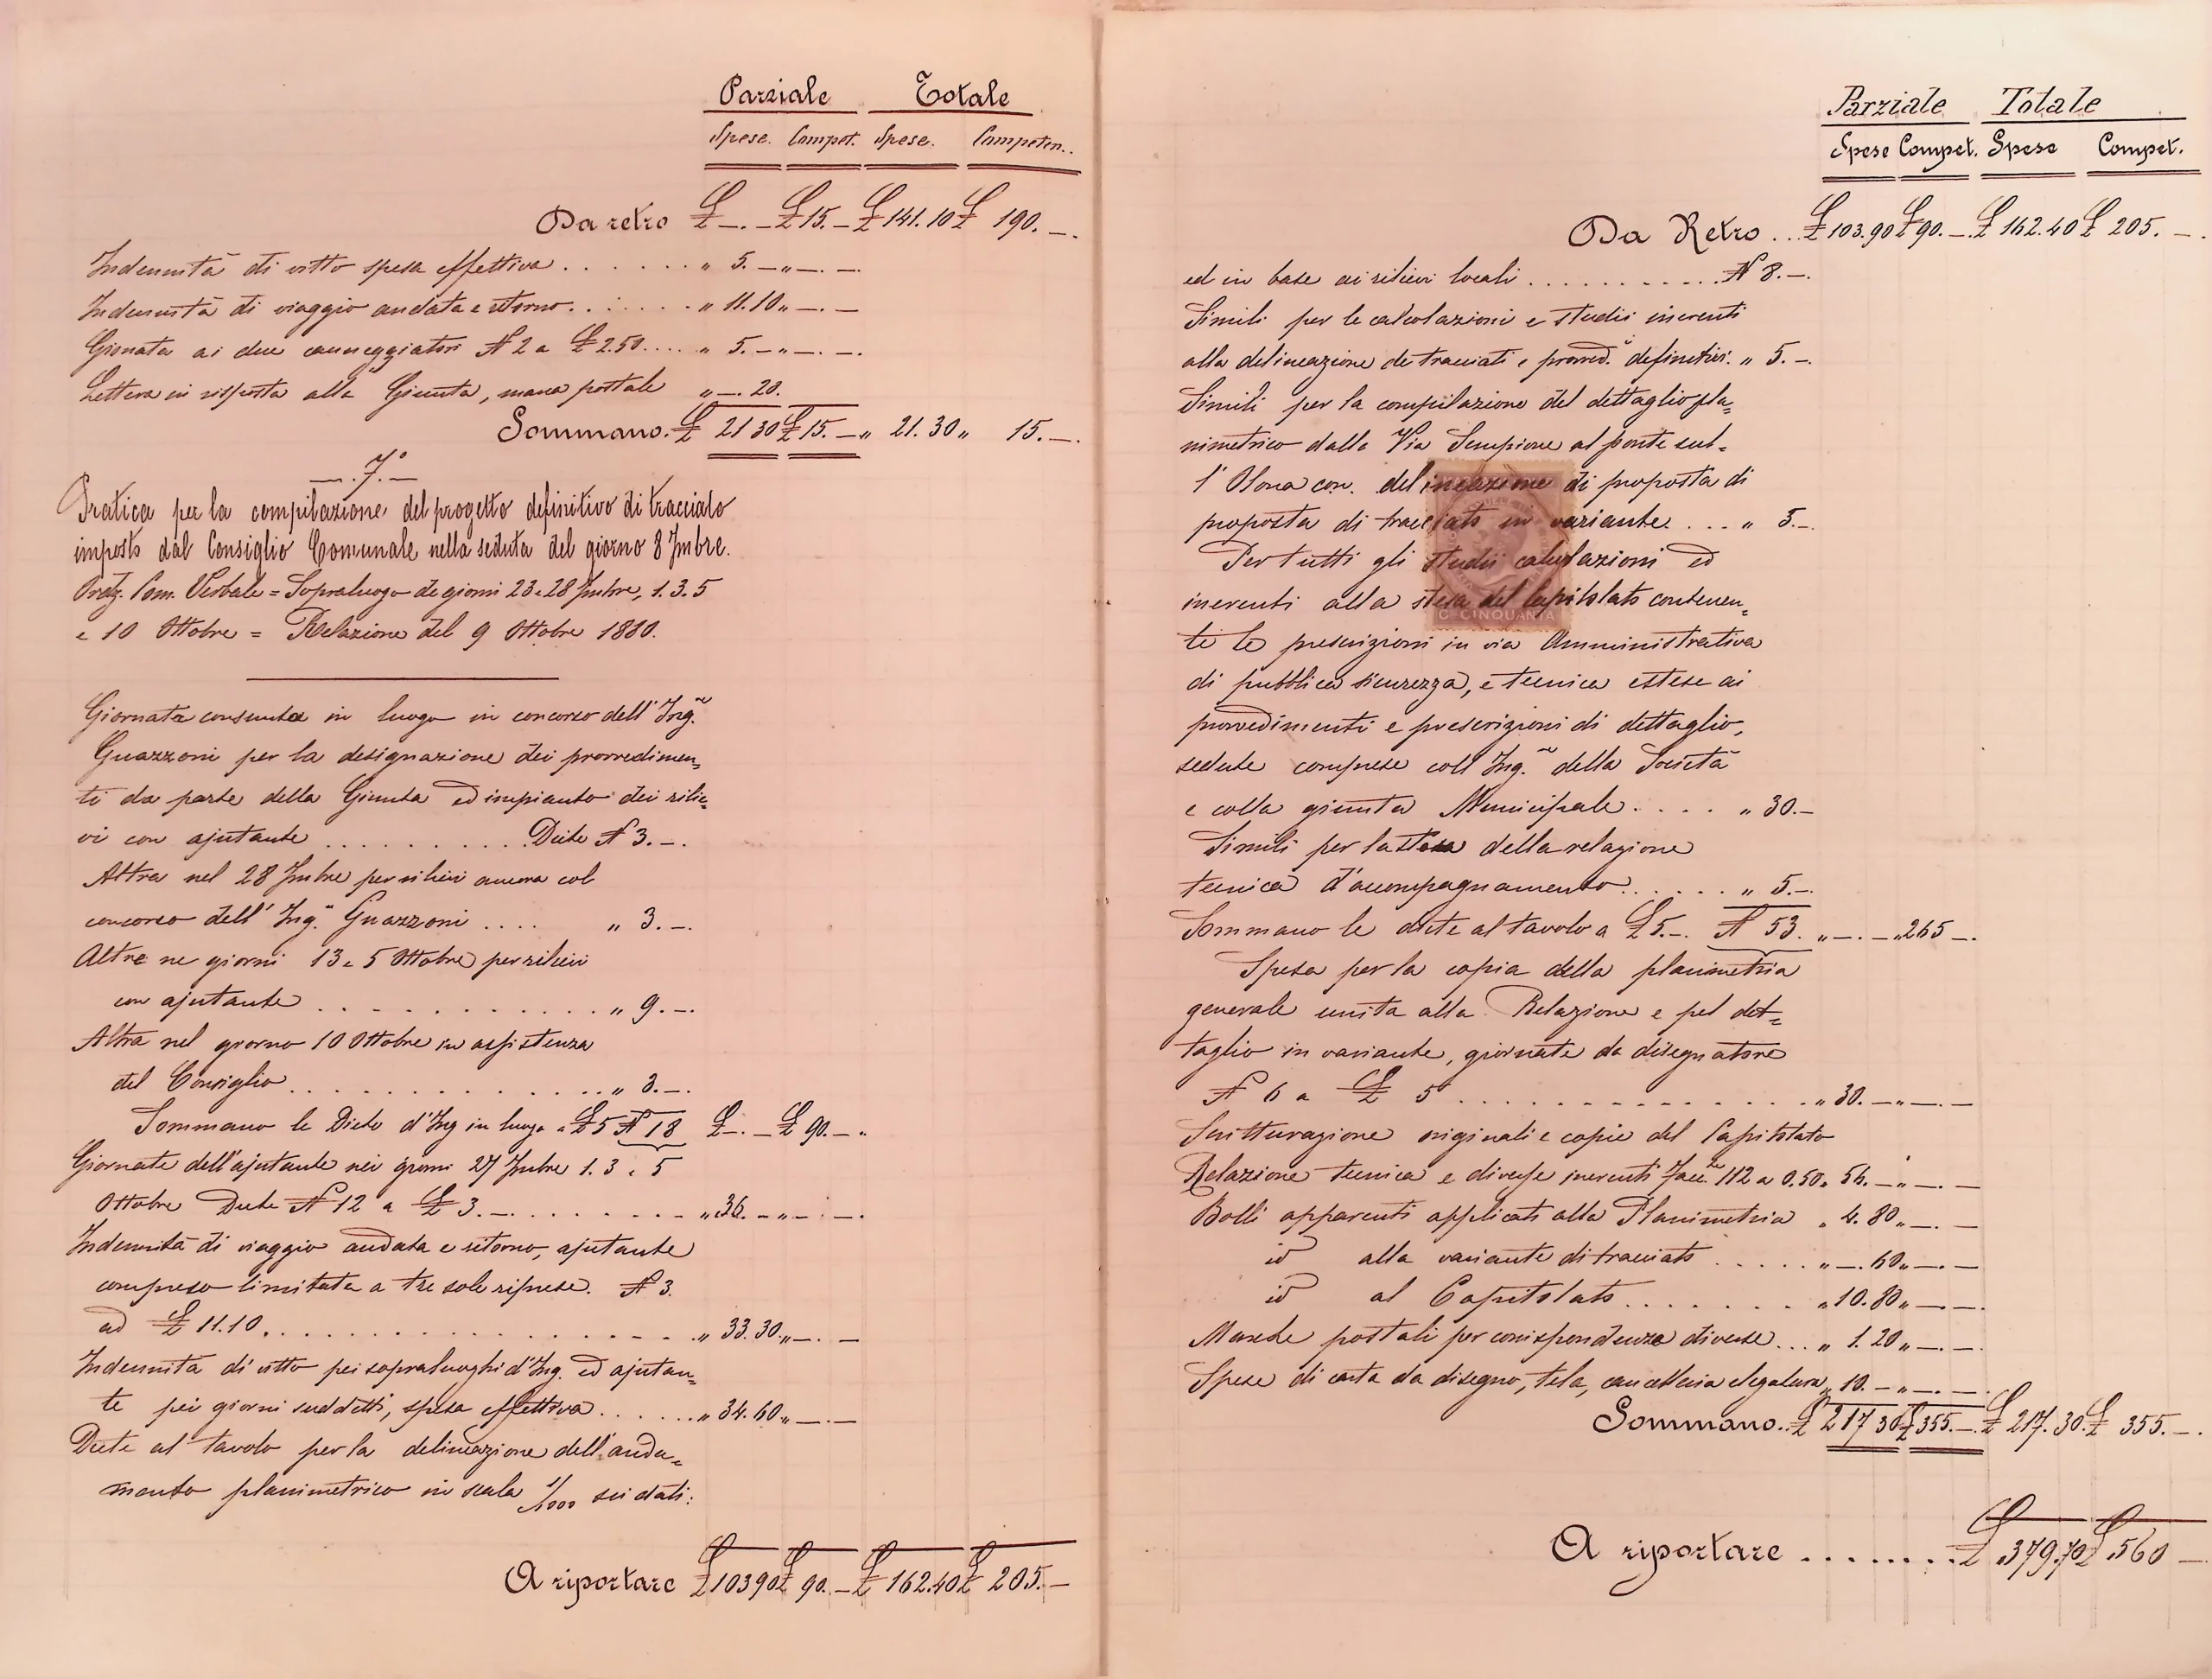 Parziale Totale
Spese. Compet. Spese. Competen..
Da retro £ —. — £ 15. — £ 141.10 £ 190. —.
Indennità di vitto spesa effettiva . . . . . . . „ 5. — „ —. —
Indennità di viaggio andata e ritorno . . . . . . . „ 11.10 „ —. —
Giornata ai due canneggiatori N 2 a £ 2.50 . . . . „ 5. — „ —. —.
Lettera in risposta alla Giunta, marca postale „ —. 20.
Sommano. £ 21 30 £ 15. — „ 21. 30 „ 15. —.
—. 7.° —
Pratica per la compilazione del progetto definitivo di tracciato
imposto dal Consiglio Comunale nella seduta del giorno 8 7mbre.
Verbale = Sopraluogo de giorni 23 e 28 7mbre, 1. 3. 5
e 10 Ottobre = Relazione del 9 Ottobre 1880.
Giornata consunta in luogo in concorso dell' Ing.re
Guazzoni per la designazione dei provvedimen=
ti da parte della Giunta ed impianto dei rilie=
vi con ajutante . . . . . . . . . . Diete N 3. —.
Altra nel 28 7mbre per rilievi ancora col
concorso dell' Ing.re Guazzoni . . . . „ 3. —.
Altre ne giorni 1 3 e 5 Ottobre per rilievi
con ajutante . . . . . . . . . . . . „ 9. —.
Altra nel giorno 10 Ottobre in assistenza
del Consiglio . . . . . . . . . . . . . „ 3. —.
Sommano le Diete d'Ing in luogo a £ 5 N 18 £ —. — £ 90. — „
Giornate dell'ajutante nei giorni 27 7mbre 1. 3 e 5
Ottobre Diete N 12 a £ 3. — . . . . . . . . „ 36. — „ —. —.
Indennità di viaggio andata e ritorno, ajutante
compreso limitata a tre sole riprese. N 3.
ad £ 11.10. . . . . . . . . . . . . . . . . . „ 33. 30. „ —. —
Indennità di vitto pei sopraluoghi d'Ing. ed ajutan=
te pei giorni suddetti, spesa effettiva . . . . . . „ 34. 60 „ —. —
Diete al tavolo per la delineazione dell'anda=
mento planimetrico in scala 1/1000 sui dati:
A riportare £ 103 90 £ 90. — £ 162.40 £ 205. —
Parziale Totale
Spese Compet. Spese Compet.
Da Retro . . . £ 103.90 £ 90. —. £ 162.40 £ 205. — .
ed in base ai rilievi locali . . . . . . . . . . . . N 8. —.
Simili per le calcolazioni e studii inerenti
alla delineazione de tracciati e provved.i definitivi. „ 5. —.
Simili per la compilazione del dettaglio pla=
nimetrico dalla Via Sempione al ponte sul=
l' Olona con delineazione di proposta di
proposta di tracciato in variante . . . „ 5. —.
Per tutti gli studii calcolazioni ed
inerenti alla stesa del Capitolato contenen=
te le prescrizioni in via Amministrativa
di pubblica sicurezza, e tecnica estese ai
provvedimenti e prescrizioni di dettaglio,
sedute comprese coll Ing.re della Società
e colla giunta Municipale . . . . „ 30. —
Simili per la stesa della relazione
tecnica d'accompagnamento . . . . . . „ 5. —.
Sommano le diete al tavolo a £ 5. —. N 53. „ —. — „ 265 —.
Spesa per la copia della planimetria
generale unita alla Relazione e pel det=
taglio in variante, giornate da disegnatore
N 6 a £ 5 . . . . . . . . . . . . . . . „ 30. — „ —. —
Scritturazione originali e copie del Capitolato
Relazione tecnica e diverse inerenti facc.te 112 a 0.50 „ 56. — „ —. —
Bolli apparenti applicati alla Planimetria „ 4. 80 „ —. —
id alla variante di tracciato . . . . . . „ —. 60 „ —. —
id al Capitolato . . . . . . . . „ 10. 80 „ —. —.
Marche postali per corrispondenza diverse . . . „ 1. 20 „ —. —.
Spese di carta da disegno, tela, cancelleria e legatura „ 10. — „ —. —.
Sommano. . £ 217 30 £ 355. —. £ 217. 30. £ 355. — .
A riportare . . . . . . . . £ 379.70 £ 560 —
C. CINQUANTA